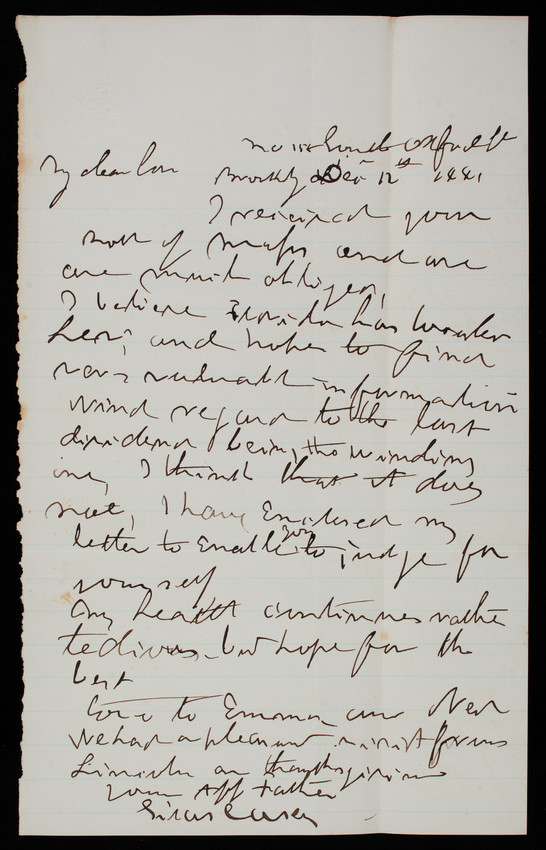 No 118 Hinds Oxford St
My dear Son Brooklyn Dec 12th 1881
I received your
roll of maps and are
are much obliged,
I believe has
here, and hopes to find
very valuable information
With regard to the last
dividend being the winding
one, I think that it does
not, I have Enclosed my
letter to Enable you to judge for
yourself
My health continues rather
tedious but hope for the
best
Love to Emma and Ned
We had a pleasant visit from
Lincoln on thanksgiving
your Aff Father
Silas Casey